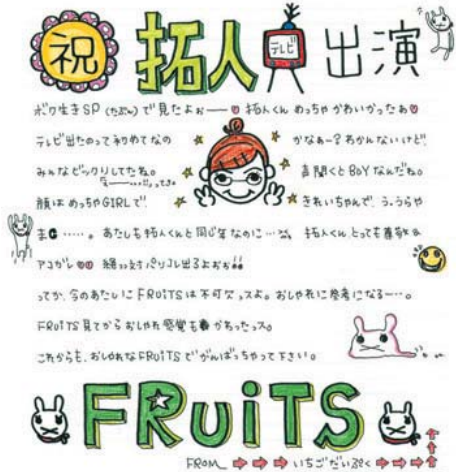 祝 拓人 テレビ 出演
ボク生きSP (たぶん) で見たよぉーー♡ 拓人くん めっちゃ かわいかったぁ♡
テレビ出たのって初めてなの かなぁー?わかんないけど、
みんなビックリしてたね。 声聞くとBOYなんだね。
顔はめっちゃGIRLで、 きれいちゃんで、う、うらや
ま……。あたしも拓人くんと同じ年なのに… 拓人くん、とっても尊敬&
アコガレ♡♡ 絶対パリコレ出るよぉぉ!!
ってか、今のあたしにFRUiTSは不可欠っスよ。おしゃれに参考になるー…。
FRUiTS見てからおしゃれ感覚も変わったっス。
これからも、おしゃれなFRUiTSでがんばっちゃって下さい。
FRUiTS
FROM ➡ ➡ ➡ いちごだいふく ➡ ➡ ➡